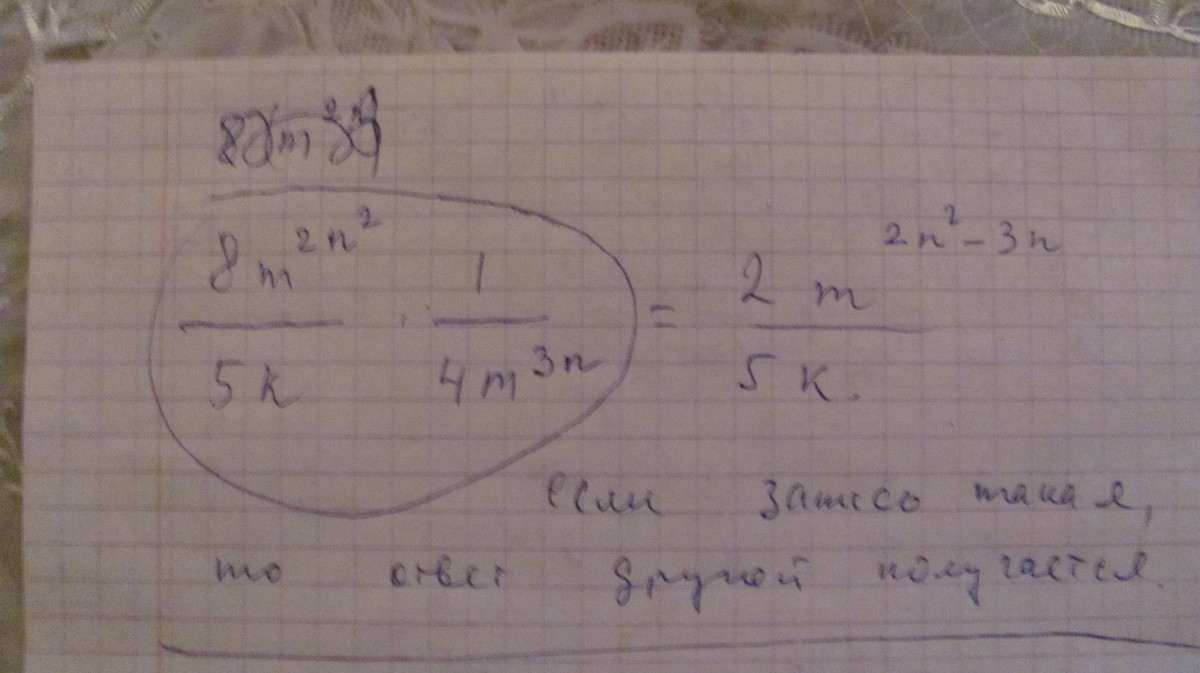 8m^{2n^2} / 5k · 1 / 4m^{3n} = 2m^{2n^2-3n} / 5k.
если запись такая,
то ответ другой получается.